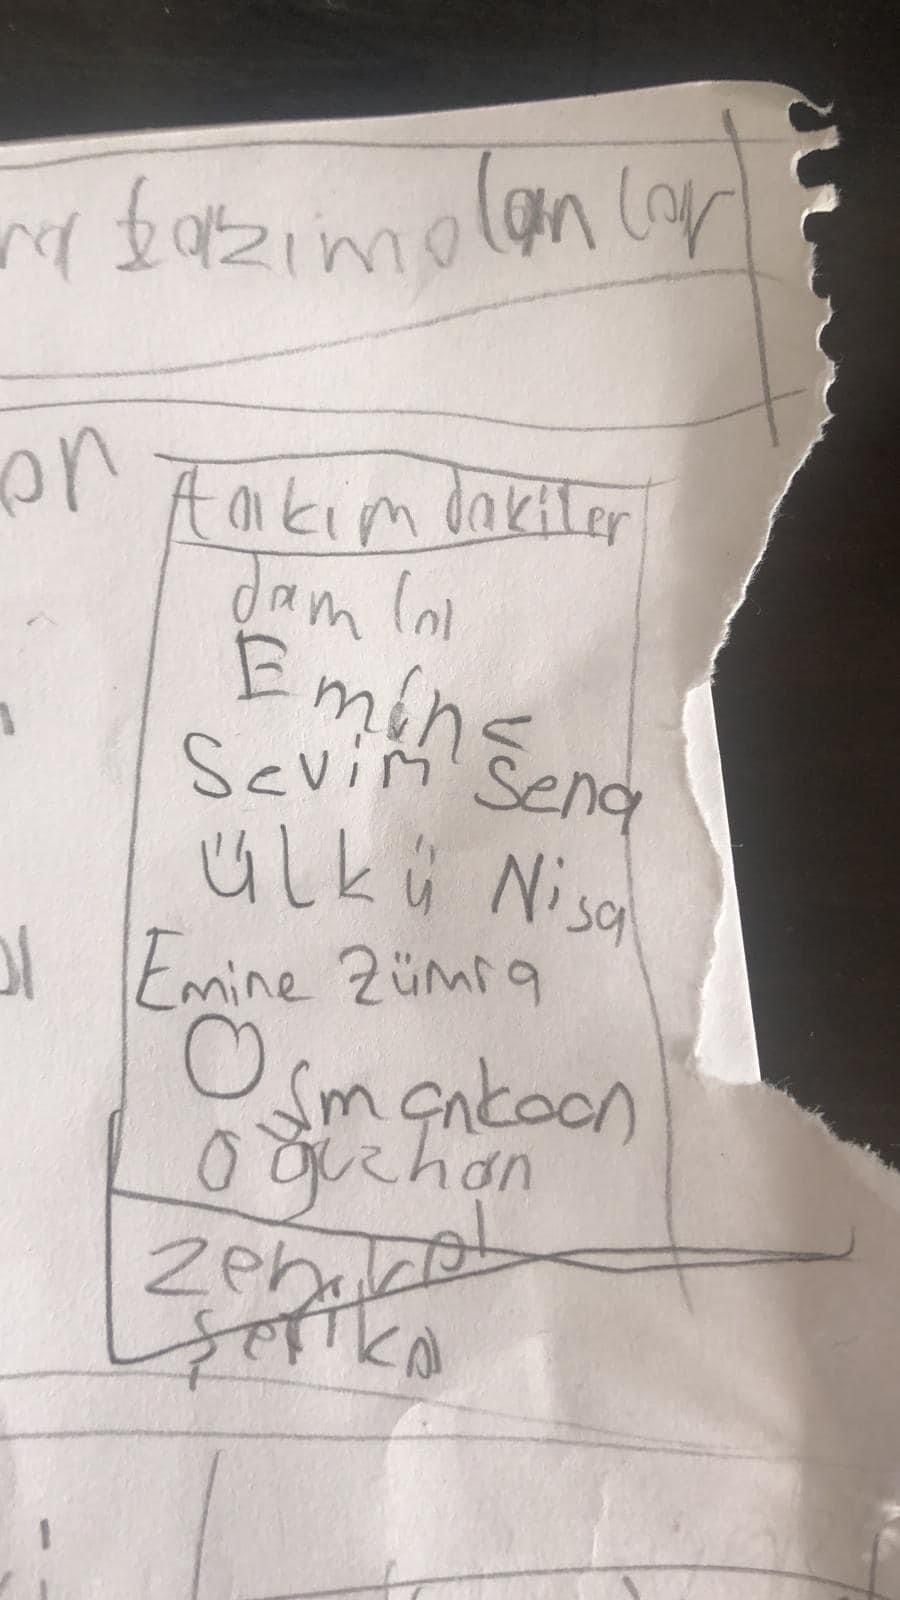 lazimolanlar
on
takım dakiler
damla
Emine
Sevim Sena
ülkü Nisa
Emine Zümra
Osmankaan
oğuzhan
zehra
şerika